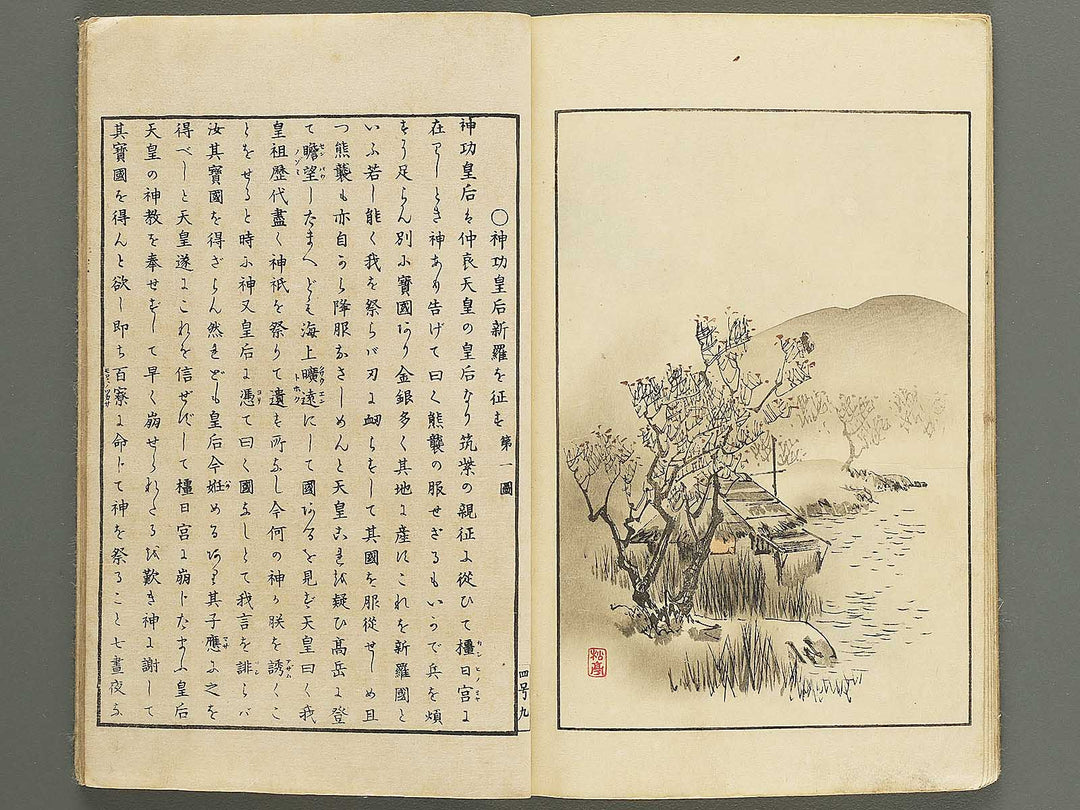 ○神功皇后新羅を征す　第一圖
神功皇后は仲哀天皇の皇后なり筑紫の親征に從ひて橿日宮に
在りしとき神あり告げて曰く熊襲の服せざるもいかで兵を煩
すに足らん別に寶國あり金銀多く其地に産にこれを新羅國と
いふ若し能く我を祭らバ刃に衂らずして其國を服從せしめ且
つ熊襲も亦自から降服なさしめんと天皇これを疑ひ高岳に登
て瞻望したまへども海上曠遠にして國あるを見ず天皇曰く我
皇祖歴代盡く神祇を祭りて遺す所なし今何の神か朕を誘くこ
とをせると時に神又皇后に憑て曰く國なしとて我言を誹らバ
汝其寶國を得ざらん然れども皇后今姙めるあり其子應に之を
得べしと天皇遂にこれを信ぜずして橿日宮に崩じたまふ皇后
天皇の神教を奉せずして早く崩せられたるを歎き神に謝して
其寶國を得んと欲し即ち百寮に命じて神を祭ること七晝夜な
四号九
松亭